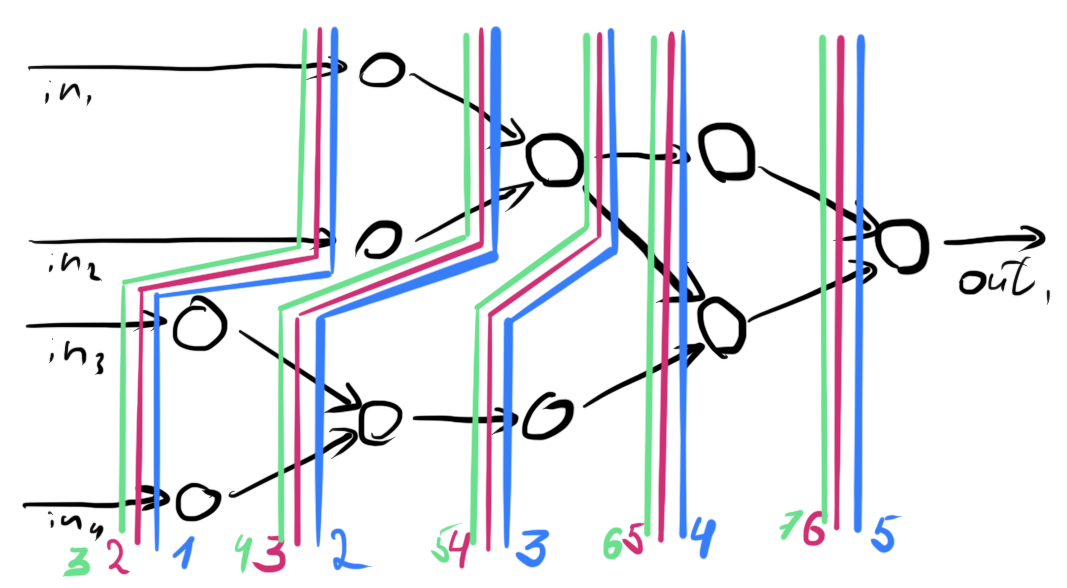 in₁
in₂
in₃
in₄
out₁
3 2 1 4 3 2 5 4 3 6 5 4 7 6 5